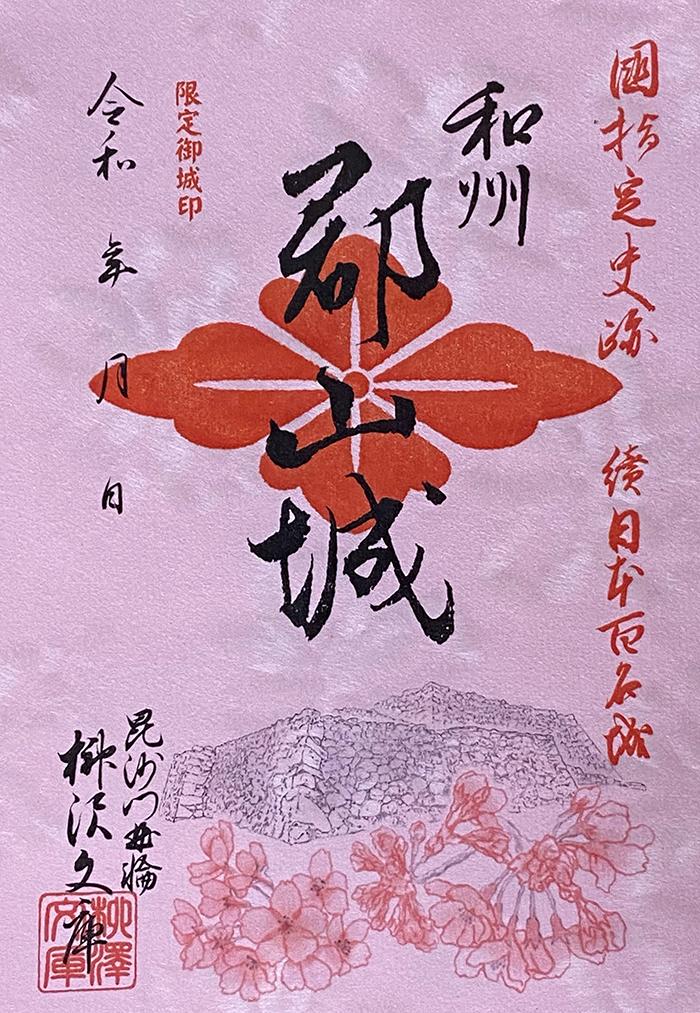 國指定史跡　續日本百名城
和州
郡山城
限定御城印
令和　年　月　日
毘沙門曲輪
柳沢文庫
柳澤
文庫